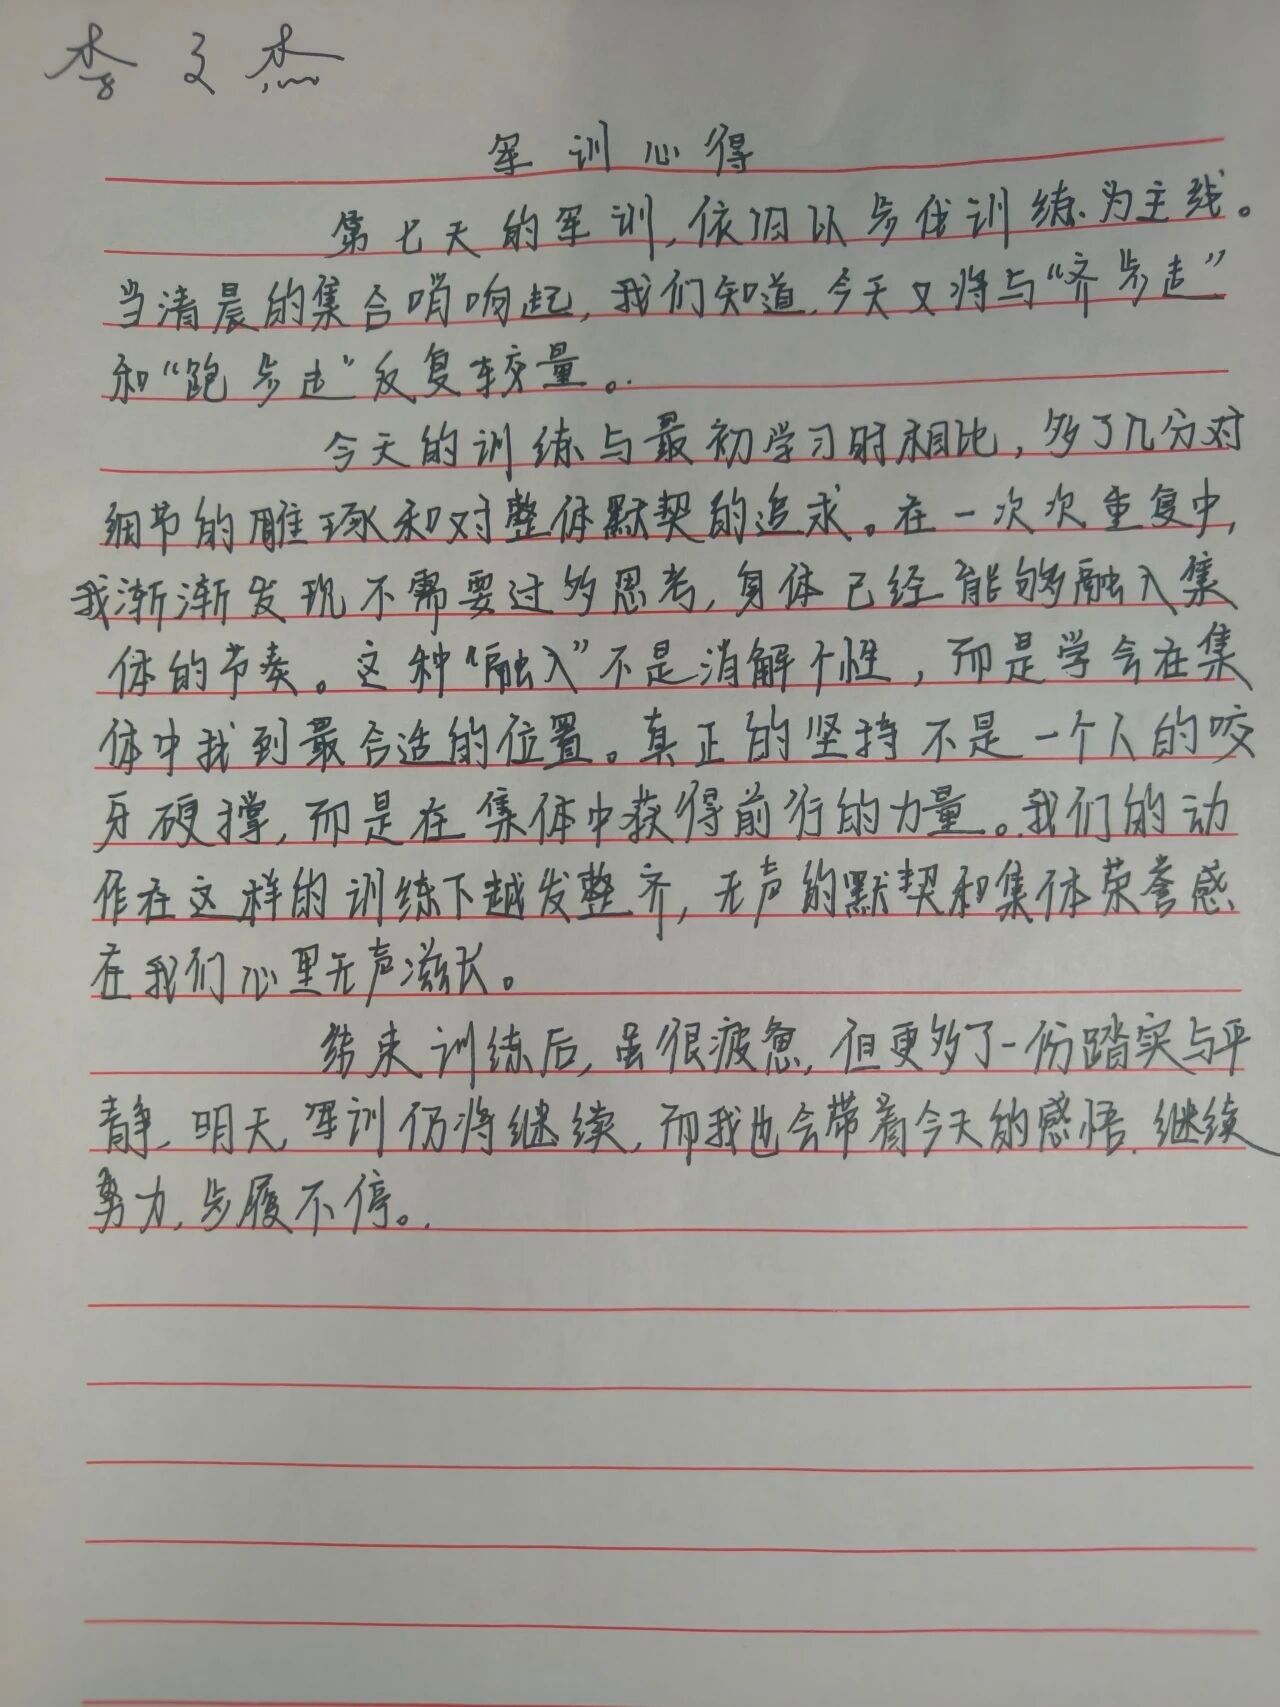 李文杰
军训心得
第七天的军训，依旧以步伐训练为主线。
当清晨的集合哨响起，我们知道，今天又将与“齐步走”
和“跑步走”反复较量。
今天的训练与最初学习时相比，多了几分对
细节的雕琢和对整体默契的追求。在一次次重复中，
我渐渐发现不需要过多思考，身体已经能够融入集
体的节奏。这种“融入”不是消解个性，而是学会在集
体中找到最合适的位置。真正的坚持不是一个人的咬
牙硬撑，而是在集体中获得前行的力量。我们的动
作在这样的训练下越发整齐，无声的默契和集体荣誉感
在我们心里无声滋长。
结束训练后，虽很疲惫，但更多了一份踏实与平
静，明天军训仍将继续，而我也会带着今天的感悟，继续
努力，步履不停。